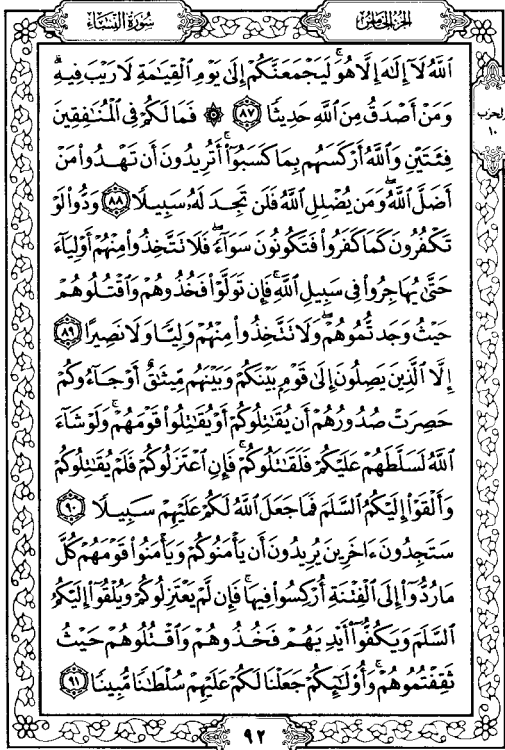 الجزء الخامس
سورة النساء
ٱللَّهُ لَآ إِلَٰهَ إِلَّا هُوَۚ لَيَجْمَعَنَّكُمْ إِلَىٰ يَوْمِ ٱلْقِيَٰمَةِ لَا رَيْبَ فِيهِۗ
وَمَنْ أَصْدَقُ مِنَ ٱللَّهِ حَدِيثًا ٨٧ ۞ فَمَا لَكُمْ فِى ٱلْمُنَٰفِقِينَ
فِئَتَيْنِ وَٱللَّهُ أَرْكَسَهُم بِمَا كَسَبُوٓا۟ۚ أَتُرِيدُونَ أَن تَهْدُوا۟ مَنْ
أَضَلَّ ٱللَّهُۖ وَمَن يُضْلِلِ ٱللَّهُ فَلَن تَجِدَ لَهُۥ سَبِيلًا ٨٨ وَدُّوا۟ لَوْ
تَكْفُرُونَ كَمَا كَفَرُوا۟ فَتَكُونُونَ سَوَآءًۖ فَلَا تَتَّخِذُوا۟ مِنْهُمْ أَوْلِيَآءَ
حَتَّىٰ يُهَاجِرُوا۟ فِى سَبِيلِ ٱللَّهِۚ فَإِن تَوَلَّوْا۟ فَخُذُوهُمْ وَٱقْتُلُوهُمْ
حَيْثُ وَجَدتُّمُوهُمْۖ وَلَا تَتَّخِذُوا۟ مِنْهُمْ وَلِيًّا وَلَا نَصِيرًا ٨٩
إِلَّا ٱلَّذِينَ يَصِلُونَ إِلَىٰ قَوْمٍۭ بَيْنَكُمْ وَبَيْنَهُم مِّيثَٰقٌ أَوْ جَآءُوكُمْ
حَصِرَتْ صُدُورُهُمْ أَن يُقَٰتِلُوكُمْ أَوْ يُقَٰتِلُوا۟ قَوْمَهُمْۚ وَلَوْ شَآءَ
ٱللَّهُ لَسَلَّطَهُمْ عَلَيْكُمْ فَلَقَٰتَلُوكُمْۚ فَإِنِ ٱعْتَزَلُوكُمْ فَلَمْ يُقَٰتِلُوكُمْ
وَأَلْقَوْا۟ إِلَيْكُمُ ٱلسَّلَمَ فَمَا جَعَلَ ٱللَّهُ لَكُمْ عَلَيْهِمْ سَبِيلًا ٩٠
سَتَجِدُونَ ءَاخَرِينَ يُرِيدُونَ أَن يَأْمَنُوكُمْ وَيَأْمَنُوا۟ قَوْمَهُمْ كُلَّ
مَا رُدُّوٓا۟ إِلَى ٱلْفِتْنَةِ أُرْكِسُوا۟ فِيهَاۚ فَإِن لَّمْ يَعْتَزِلُوكُمْ وَيُلْقُوٓا۟ إِلَيْكُمُ
ٱلسَّلَمَ وَيَكُفُّوٓا۟ أَيْدِيَهُمْ فَخُذُوهُمْ وَٱقْتُلُوهُمْ حَيْثُ
ثَقِفْتُمُوهُمْۚ وَأُو۟لَٰٓئِكُمْ جَعَلْنَا لَكُمْ عَلَيْهِمْ سُلْطَٰنًا مُّبِينًا ٩١
الحزب
١٠
٩٢